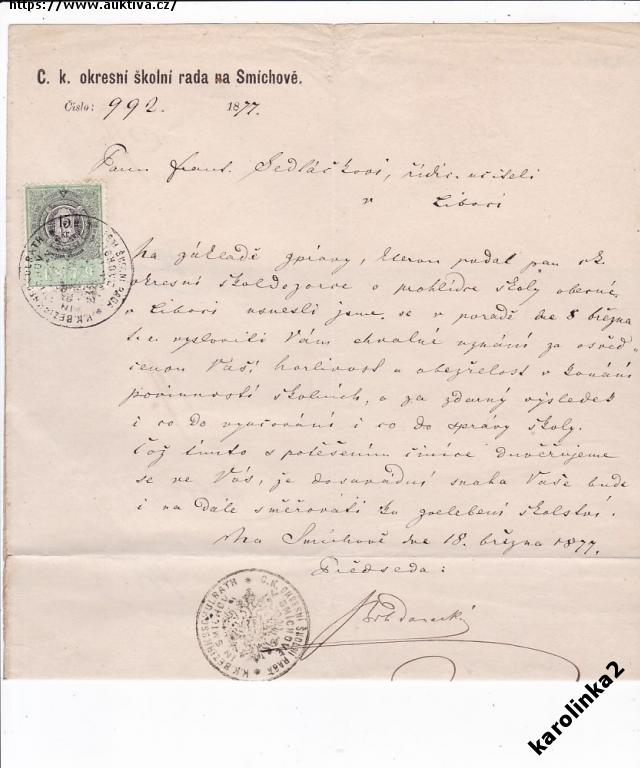 https://www.auktiva.cz/
C. k. okresní školní rada na Smíchově.
Číslo: 992. 1877.
Panu Frant. Sedláčkovi, řídic. učiteli
v Liboci
15
Na základě zprávy, kterou podal pan ck.
okresní školdozorce o prohlídce školy obecné
v Liboci usnesli jsme se v poradě dne 8 března
t. r. vysloviti Vám chvalné uznání za osvěd-
čenou Vaší horlivost a obezřelost v konání
povinností školních, a za zdarný výsledek
i co do vyučování i co do správy školy.
Což tímto s potěšením činíce důvěřujeme
se ve Vás, že dosavádní snaha Vaše bude
i na dále směřovati ku zvelebení školství.
Na Smíchově dne 18. března 1877.
Předseda:
C.K. OKRESNÍ ŠKOLNÍ RADA
V SMÍCHOVĚ
K.K. BEZIRKSSCHULRATH
IN SMICHOV
karolinka2